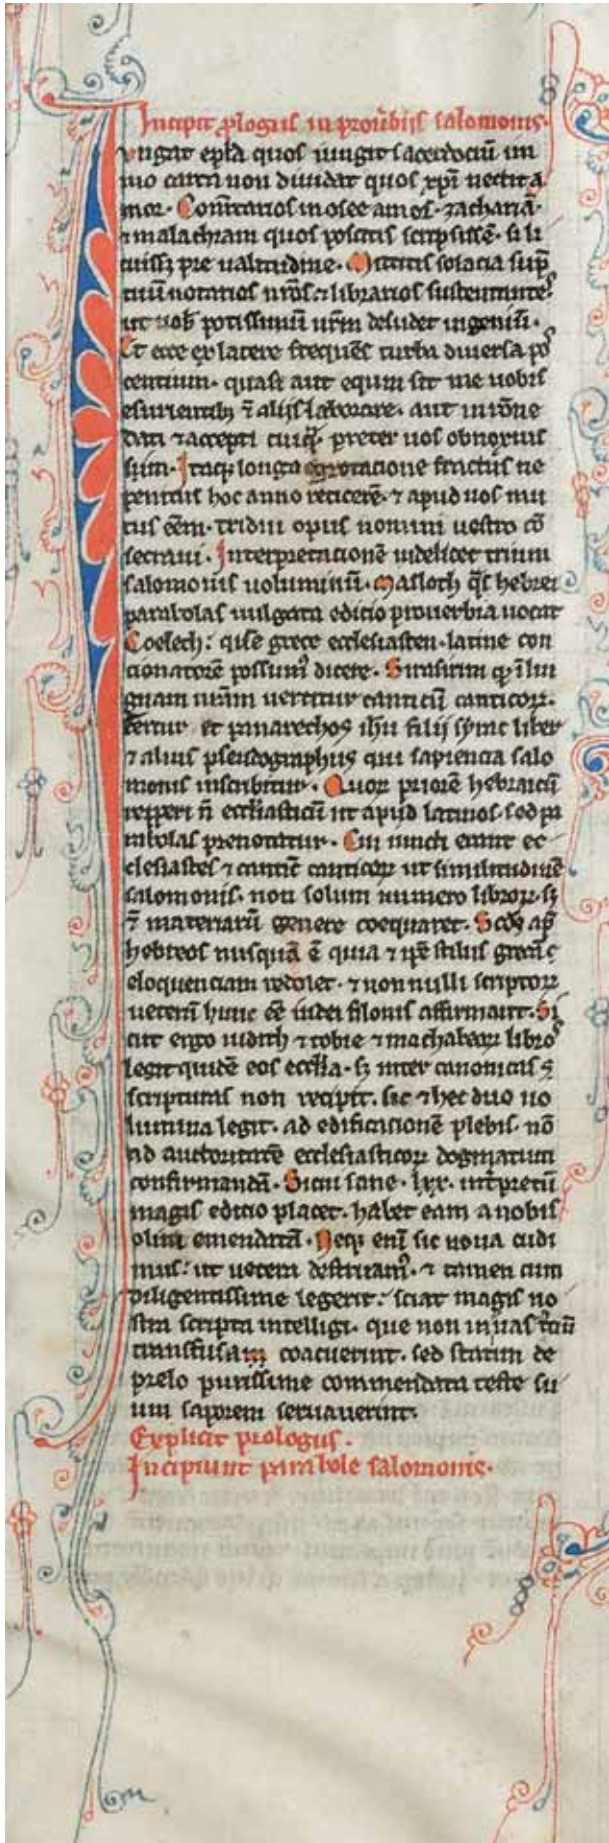 Incipit ꝓlogus in prou̅biis salomonis.
Iungat ep̅la quos iungit sacerdociu̅ im
mo carta non diuidat quos xp̅i nectit a
mor. Com̅tarios in osee amos. zacharia̅.
⁊ malachiam quos poscitis scripsisse̅. si li
cuissꝫ pre ualitudine. Mittitis solacia su̅p
tuu̅ notarios nr̅os ⁊ librarios sustentantes
ut uob̅ potissimu̅ nr̅m desudet ingeniu̅.
Et ecce ex latere freque̅s turba diuersa pos
centium. quasi aut equm sit me uobis
esurientibꝫ ⁊ aliis laborare. aut in ro̅ne
dati ⁊ accepti cuiqꝫ. preter uos obnoxius
sum. Itaqꝫ longa egrotacione fractus ne
penitus hoc anno reticere̅. ⁊ apud uos mu
tus e̅em. tridui opus nomini uestro co̅
secraui. Interpretacione̅ uidelicet trium
salomonis uoluminu̅. Masloth q̅s hebrei
parabolas uulgata edicio prouerbia uocat
Coelech: que̅ grece ecclesiasten. latine con
cionatore̅ possum⁹ dicere. Sirasirim qd̅ i̅ lin
guam nr̅am uertitur canticu̅ canticoꝝ.
Fertur et panarethos ih̅u filii syrac liber
⁊ alius pseudographus qui sapiencia salo
monis inscribitur. Quoꝝ priore̅ hebraicu̅
repperi n̅ eccl̅iasticu̅ ut apud latinos. sed pa
rabolas prenotatur. Cui iuncti erant ec
clesiastes ⁊ cantic̅ canticoꝝ ut similitudine̅
salomonis. non solum numero libroꝝ. sꝫ
⁊ materiaru̅ genere coequaret. Sc̅ds ap̅
hebreos nusqua̅ e̅ quia ⁊ ip̅e stilus greca̅
eloquenciam redolet. ⁊ non nulli scriptoꝝ
ueteru̅ hunc e̅e iudei filonis affirmant. Si
cut ergo iudith ⁊ tobie ⁊ machabeoꝝ libros
legit quide̅ eos eccl̅ia. sꝫ inter canonicas
scripturas non recipit. sic ⁊ hec duo uo
lumina legit. ad edificacione̅ plebis. no̅
ad auctoritate̅ ecclesiasticoꝝ dogmatum
confirmanda̅. Sicui sane. lxx. int̅pretu̅
magis edicio placet. habet eam a nobis
olim emendata̅. Neqꝫ eni̅ sic noua cudi
mus: ut uetera destruam⁹. ⁊ tamen cum
diligentissime legerit: sciat magis no
stra scripta intelligi. que non in uas t̅ciu̅
transfusam coacuerint. sed statim de
prelo purissime commendata teste su
um saporem seruauerint.
Explicit prologus.
Incipiunt parabole salomonis.